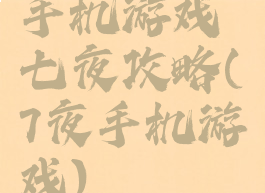 手机游戏
七夜攻略(
7夜手机游
戏)